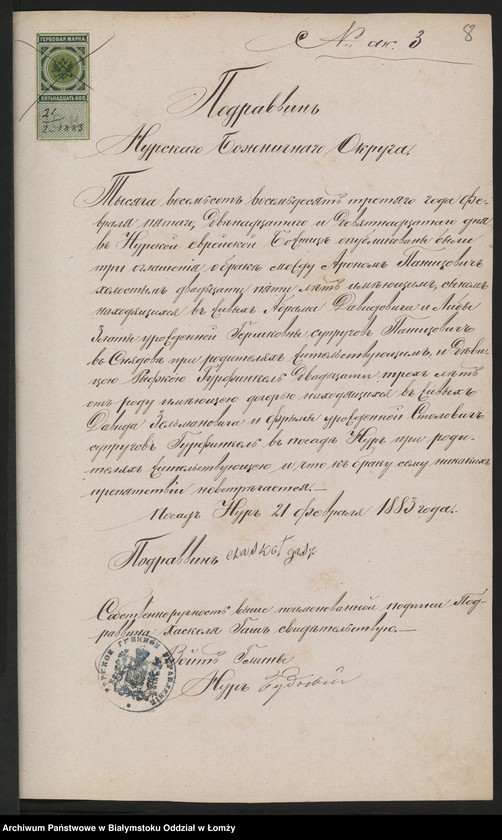 8
№ ак. 3
ГЕРБОВАЯ МАРКА
ПЯТЬНАДЦАТЬ КОП.
21/2 1883
Подраввинъ
Нурскаго Божничнаго Округа.
Тысяча восемьсотъ восемьдесятъ третяго года Фе-
враля пятаго, Двѣнадцатаго и Девятнадцатаго дня
въ Нурской еврейской Божницѣ опубликованы были
три оглашенія о бракѣ между Арономъ Панцовичъ
холостымъ двадцати пяти лѣтъ имѣющимъ, сыномъ
находящихся въ живыхъ Абрама Давидовича и Либы
Златы урожденной Гершковны супруговъ Панцовичъ
въ Снядовѣ при родителяхъ жительствующимъ, и Дѣви-
цею Рыфкою Гурфинкель Двадцати трехъ лѣтъ
отъ роду имѣющею дочерью находящихся въ живыхъ
Давида Зельмановича и Фрымы урожденной Столовичъ
супруговъ Гурфинкель въ посадѣ Нуръ при роди-
теляхъ жительствующею и что къ браку сему никакихъ
препятствій невстрѣчается.—
Посадъ Нуръ 21 Февраля 1883 года.
Подраввинъ
Собственноручность выше поименованной подписи Под-
раввина Хаскеля Гашъ свидѣтельствую.—
Войтъ Гмины
Нуръ
Archiwum Państwowe w Białymstoku Oddział w Łomży